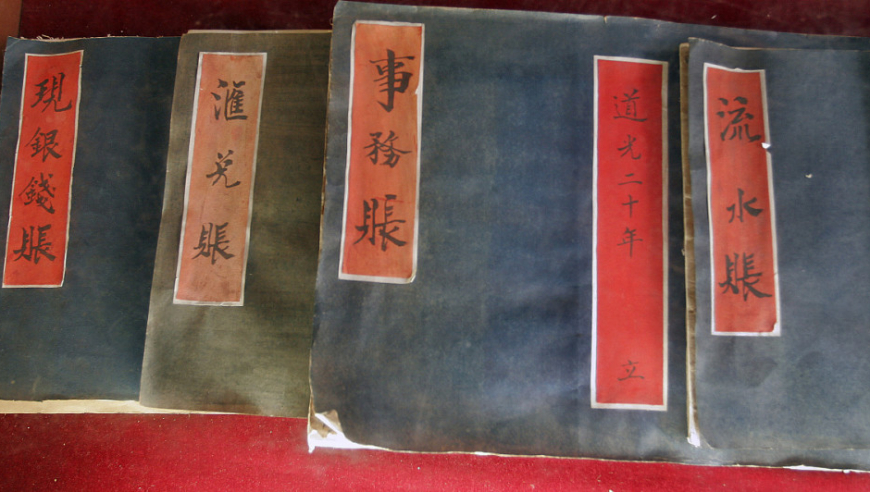 現銀錢賬
滙兑賬
事務賬
道光二十年 立
流水賬